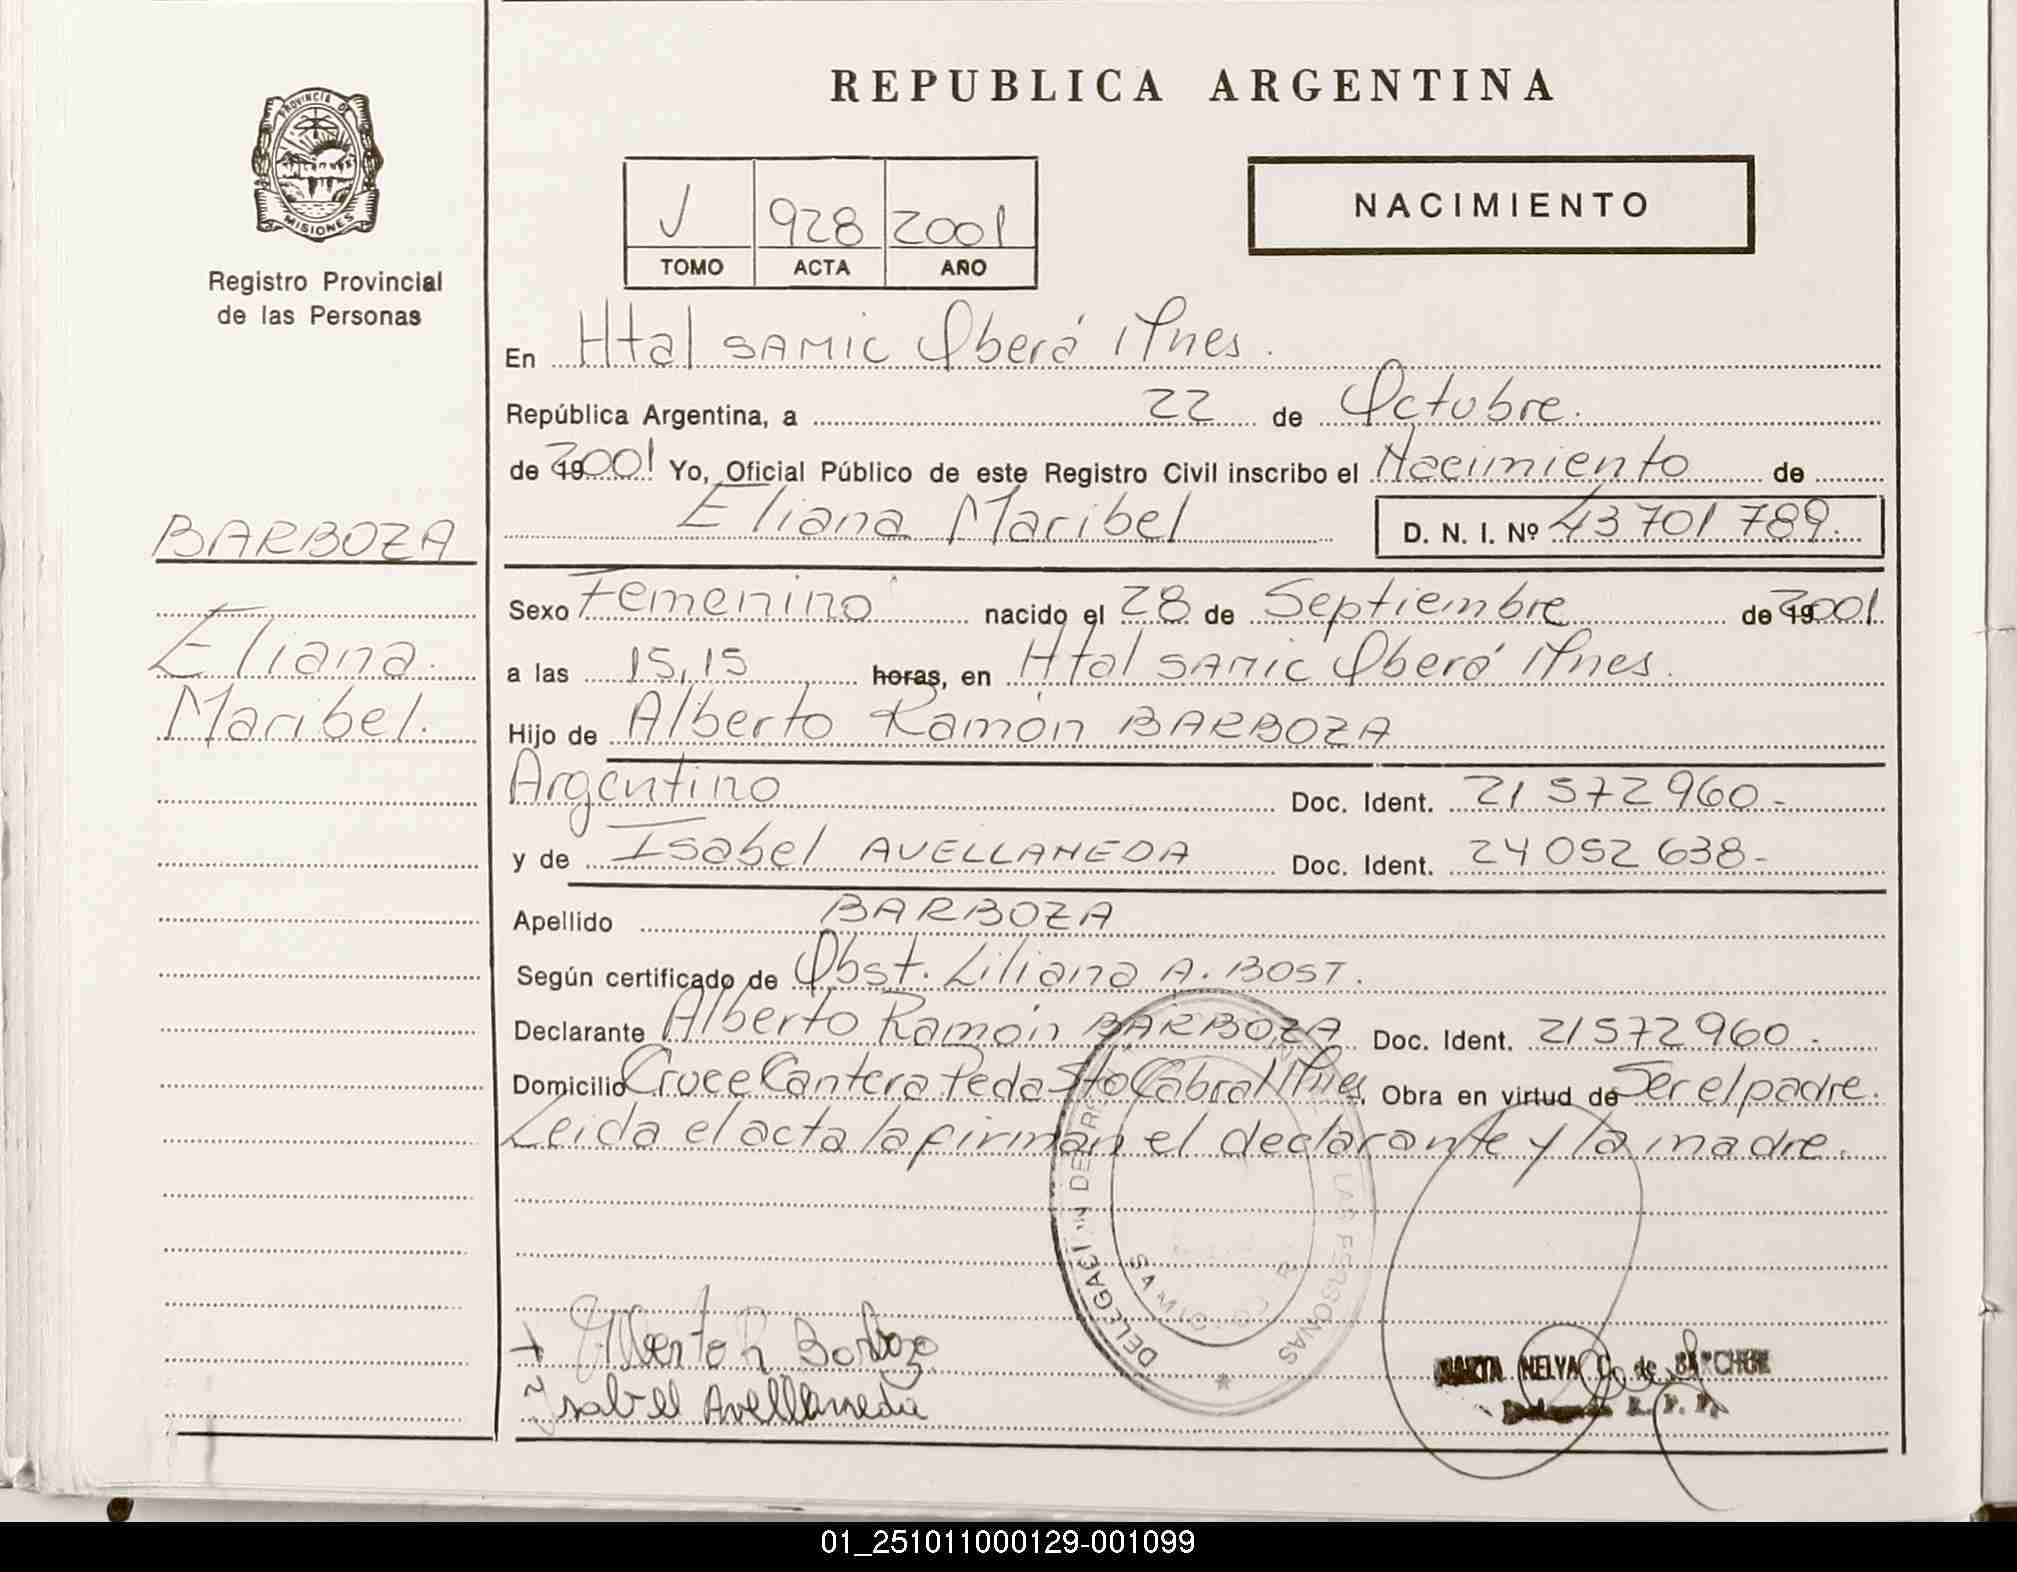 PROVINCIA DE
MISIONES
Registro Provincial
de las Personas
BARBOZA
Eliana
Maribel.
REPUBLICA ARGENTINA
J 928 2001
TOMO ACTA AÑO
NACIMIENTO
En Htal SAMIC Oberá Mnes.
República Argentina, a 22 de Octubre.
de 2001 Yo, Oficial Público de este Registro Civil inscribo el Nacimiento de
Eliana Maribel D. N. I. Nº 43 701 789.
Sexo Femenino nacido el 28 de Septiembre de 2001.
a las 15,15 horas, en Htal SAMIC Oberá Mnes.
Hijo de Alberto Ramón BARBOZA
Argentino Doc. Ident. 21 572 960-
y de Isabel AVELLANEDA Doc. Ident. 24 052 638-
Apellido BARBOZA
Según certificado de Obst. Liliana A. BOST.
Declarante Alberto Ramón BARBOZA Doc. Ident. 21 572 960.
Domicilio Cruce Cantera Peda Sto Cabral Mnes, Obra en virtud de Ser el padre.
Leida el acta la firman el declarante y la madre.
Alberto R Barboza
Isabel Avellaneda
DELEGACION DE LAS PERSONAS
MARTA NELVA de
01_251011000129-001099